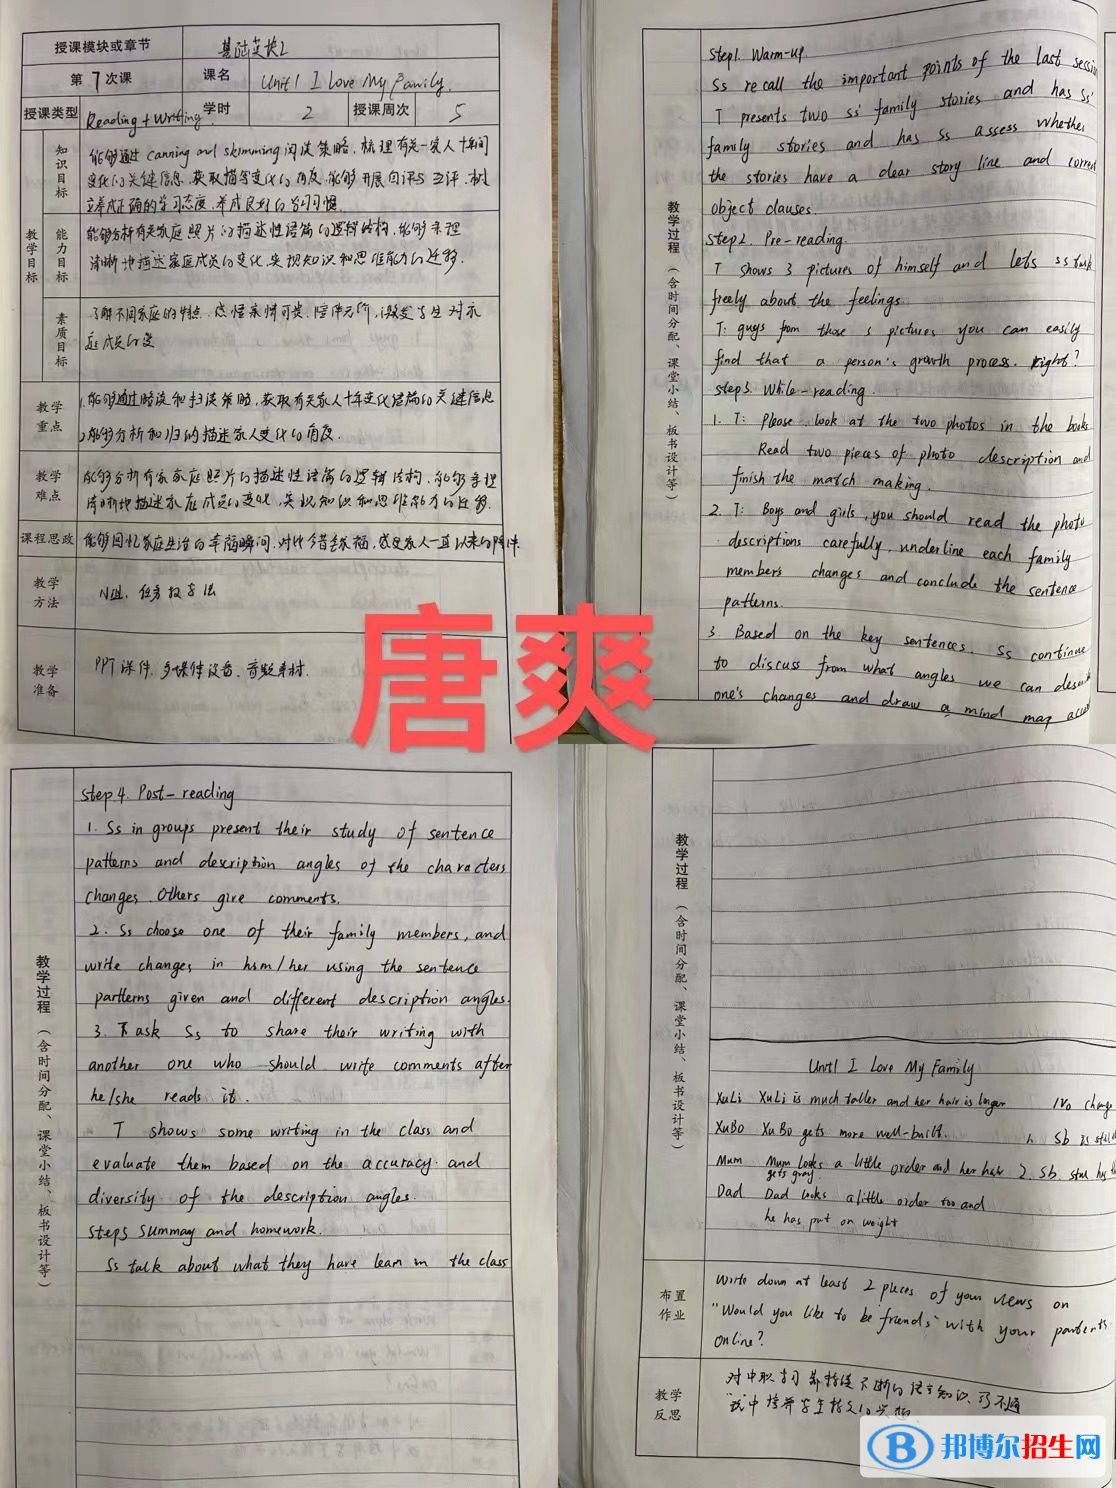 授课模块或章节 基础英语2
第7次课 课名 Unit1 I Love My Family.
授课类型 Reading + Writing 学时 2 授课周次 5
教学目标
知识目标
能够通过canning and skimming阅读策略, 梳理有关一家人十年间
变化的关键信息, 获取描写变化的角度, 能够开展自评与互评, 树
立养成正确的学习态度, 养成良好的学习习惯.
能力目标
能够分析有关家庭照片的描述性语篇的逻辑结构, 能够条理
清晰地描述家庭成员的变化, 实现知识和思维能力的迁移.
素质目标
了解不同家庭的特点, 感悟亲情可贵, 陪伴无价, 激发学生对家
庭成员的爱
教学重点
1.能够通过略读和扫读策略, 获取有关家人十年变化语篇的关键信息
2.能够分析和归纳描述家人变化的角度.
教学难点
能够分析有关家庭照片的描述性语篇的逻辑结构, 能够条理
清晰地描述家庭成员的变化, 实现知识和思维能力的迁移.
课程思政 能够回忆家庭生活的幸福瞬间, 对比今昔幸福, 感受家人一直以来的陪伴.
教学方法 任务教学法
教学准备 PPT课件, 多媒体设备, 音频素材.
教学过程（含时间分配、课堂小结、板书设计等）
Step1. Warm-up
Ss recall the important points of the last session
T presents two ss' family stories and has ss'
family stories and has ss assess whether
the stories have a clear story line and correct
object clauses.
Step2. Pre-reading.
T shows 3 pictures of himself and lets ss talk
freely about the feelings.
T: guys from those s pictures you can easily
find that a person's growth process. Right?
step3. While-reading.
1. T: Please look at the two photos in the books
Read two pieces of photo description and
finish the match making.
2. T: Boys and girls, you should read the photo
descriptions carefully, underline each family
members changes and conclude the sentence
patterns.
3. Based on the key sentences. Ss continue
to discuss from what angles we can describe
one's changes and draw a mind map
唐爽
教学过程（含时间分配、课堂小结、板书设计等）
Step 4. Post-reading
1. Ss in groups present their study of sentence
patterns and description angles of the characters
changes. Others give comments.
2. Ss choose one of their family members, and
write changes in hsm/her using the sentence
partterns given and different description angles.
3. T ask Ss to share their writing with
another one who should write comments after
he/she reads it.
T shows some writing in the class and
evaluate them based on the accuracy and
diversity of the description angles.
step5 summay and homework.
Ss talk about what they have learn in the class
教学过程（含时间分配、课堂小结、板书设计等）
Unit1 I Love My Family
XuLi XuLi is much taller and her hair is longer
XuBo XuBo gets more well-built. 1. sb is still
Mum Mum Looks a little order and her hair 2. sb.
gets gray.
Dad Dad Looks a little order too and
he has put on weight
布置作业
Write down at least 2 pieces of your views on
"Would you like to be friends" with your partents
online?
教学反思
邦博尔招生网